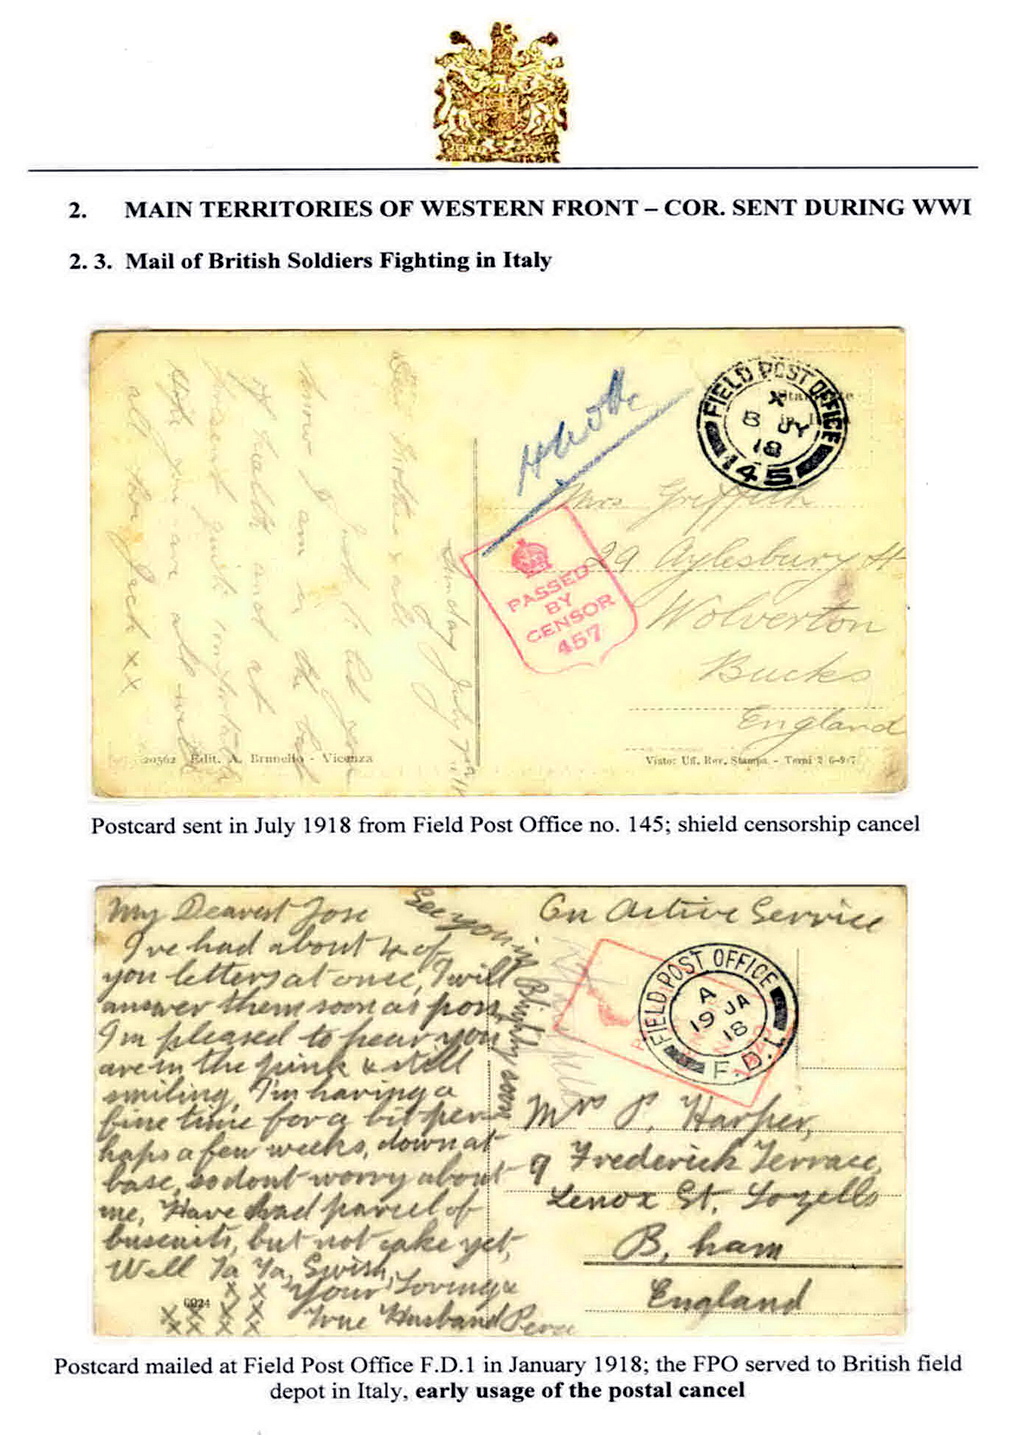 2. MAIN TERRITORIES OF WESTERN FRONT – COR. SENT DURING WWI
2. 3. Mail of British Soldiers Fighting in Italy
Sunday July 7th
Dear Mother & all
Just to let you
know I am in the best
of health and at
present quite comfortable
Hope you are all well
all the Jack x x
FIELD POST OFFICE
X
8 JY
18
145
PASSED
BY
CENSOR
457
Mrs Griffith
29 Aylesbury St
Wolverton
Bucks
England
20562 Edit. A. Brunello - Vicenza
Visto: Uff. Rev. Stampa - Terni
Postcard sent in July 1918 from Field Post Office no. 145; shield censorship cancel
My Dearest Jose
I've had about 4 of
you letters at once, I will
answer them soon as poss
I'm pleased to hear you
are in the pink & still
smiling, I'm having a
fine time for a bit per
haps a few weeks, down at
base, so dont worry about
me, Have had parcel of
buscuits, but not cake yet,
Well Ta Ta, Swish,
x x Your Loving &
x x x x True Husband Perce
x x x x
See you in Blighty soon
6024
On Active Service
FIELD POST OFFICE
A
19 JA
18
F.D.1
Mrs P. Harper,
9 Frederick Terrace,
Lenox St, Lozells
B, ham
England
Postcard mailed at Field Post Office F.D.1 in January 1918; the FPO served to British field
depot in Italy, early usage of the postal cancel